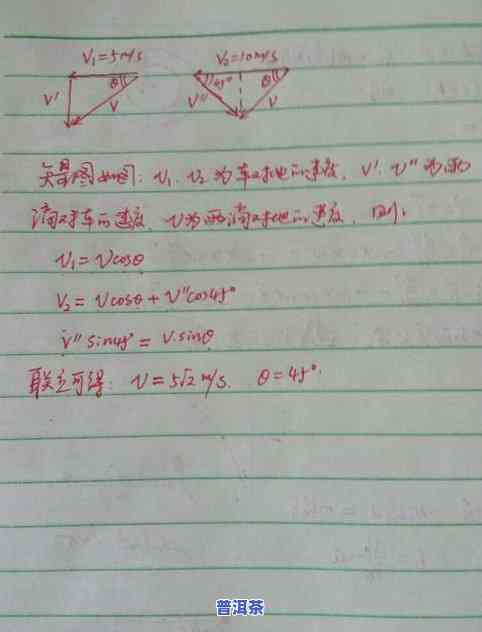 V₁=5m/s
V₂=10m/s
θ
45°
θ
V'
V
V''
V
矢量图如图: V₁、V₂为车对地的速度, V'、V''为雨
滴对车的速度, V为雨滴对地的速度, 则:
V₁=Vcosθ
V₂=Vcosθ+V''cos45°
V''sin45°=V·sinθ
联立可得: V=5√2m/s. θ=45°.
普洱茶